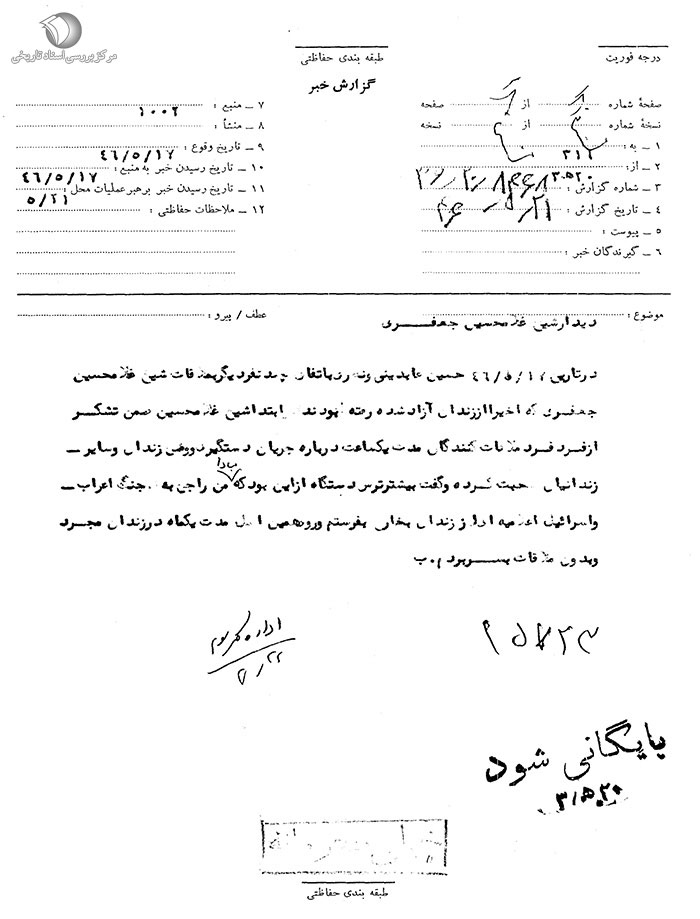 مرکز بررسی اسناد تاریخی
طبقه بندی حفاظتی
درجه فوریت
گزارش خبر
صفحهٔ شماره از صفحه
نسخهٔ شماره از نسخه
۱ ــ به :
۲ ــ از : ۳۱۲
۳ ــ شماره گزارش :
۴ ــ تاریخ گزارش :
۵ ــ پیوست :
۶ ــ گیرندگان خبر :
۷ ــ منبع : ۱۰۰۲
۸ ــ منشأ :
۹ ــ تاریخ وقوع : ۴۶/۵/۱۷
۱۰ ــ تاریخ رسیدن خبر به منبع : ۴۶/۵/۱۷
۱۱ ــ تاریخ رسیدن خبر برهبر عملیات محل : ۵/۲۱
۱۲ ــ ملاحظات حفاظتی :
موضوع : دیدار شیخ غلامحسین جعفری
عطف / پیرو :
در تاریخ ۴۶/۵/۱۷ حسین عابدینی باتفاق چند نفر دیگر بملاقات شیخ غلامحسین
جعفری که اخیرا از زندان آزاد شده رفته بودند ابتدا شیخ غلامحسین ضمن تشکر
از فرد فرد ملاقات کنندگان مدت یکساعت درباره جریان دستگیری و وضع زندان و سایر ــ
زندانیان صحبت کرده و گفت بیشتر ترس دستگاه از این بود که مبادا من راجع به جنگ اعراب ــ
و اسرائیل اعلامیه از زندان بخارج بفرستم و روی همین اصل مدت یکماه در زندان مجرد
و بدون ملاقات بسر بردم. ب
اداره کل سوم
بایگانی شود
طبقه بندی حفاظتی